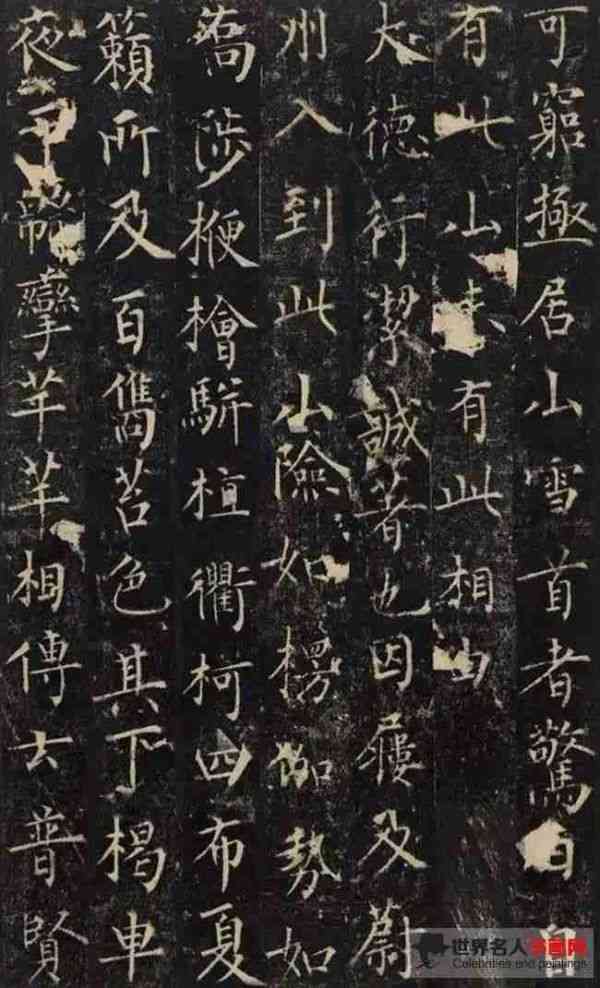 可窮極居山雪首者驚自
有此山未有此相
大德行潔誠著也因屨及蔚
州入到此山險如楞伽勢如
喬陟楩檜駢植衢柯四布夏
籟所及百雋苔色其下楬車
夜干攣芊芊相傳云普賢
世界名人书画网
Celebrities and paintings